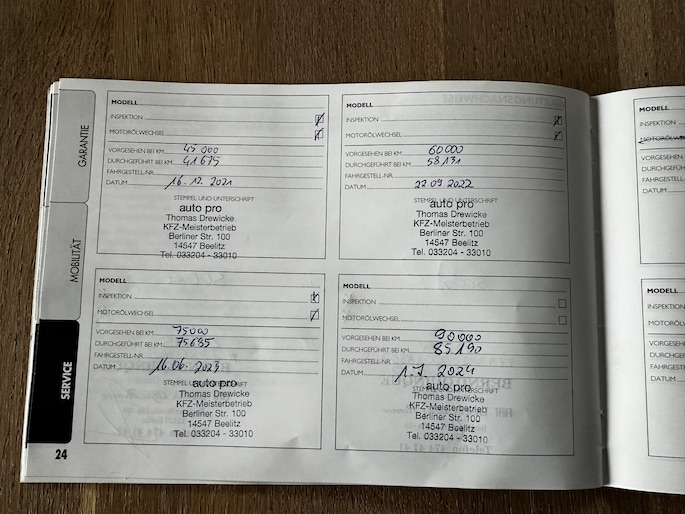 GARANTIE
MOBILITÄT
SERVICE
MODELL
INSPEKTION
MOTORÖLWECHSEL
VORGESEHEN BEI KM 45 000
DURCHGEFÜHRT BEI KM 41675
FAHRGESTELL-NR.
DATUM 16.12.2021
STEMPEL UND UNTERSCHRIFT
auto pro
Thomas Drewicke
KFZ-Meisterbetrieb
Berliner Str. 100
14547 Beelitz
Tel. 033204 - 33010
MODELL
INSPEKTION
MOTORÖLWECHSEL
VORGESEHEN BEI KM 60000
DURCHGEFÜHRT BEI KM 58131
FAHRGESTELL-NR.
DATUM 22.09.2022
STEMPEL UND UNTERSCHRIFT
auto pro
Thomas Drewicke
KFZ-Meisterbetrieb
Berliner Str. 100
14547 Beelitz
Tel. 033204 - 33010
MODELL
INSPEKTION
MOTORÖLWECHSEL
VORGESEHEN BEI KM 75000
DURCHGEFÜHRT BEI KM 75695
FAHRGESTELL-NR.
DATUM 16.06.2023
STEMPEL UND UNTERSCHRIFT
auto pro
Thomas Drewicke
KFZ-Meisterbetrieb
Berliner Str. 100
14547 Beelitz
Tel. 033204 - 33010
MODELL
INSPEKTION
MOTORÖLWECHSEL
VORGESEHEN BEI KM 90000
DURCHGEFÜHRT BEI KM 85190
FAHRGESTELL-NR.
DATUM 1.7.2024
auto pro
Thomas Drewicke
KFZ-Meisterbetrieb
Berliner Str. 100
14547 Beelitz
Tel. 033204 - 33010
24
MODELL
INSPEKTION
VORGESEHEN
DURCHGEFÜ
FAHRGESTELL
DATUM
MODELL
INSPEKTION
MOTORÖLW
VORGESEHEN
DURCHGEF
FAHRGESTEL
DATUM